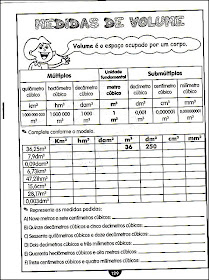 MEDIDAS DE VOLUME
Volume é o espaço ocupado por um corpo.
Múltiplos Unidade fundamental Submúltiplos
quilômetro cúbico hectômetro cúbico decâmetro cúbico metro cúbico decímetro cúbico centímetro cúbico milímetro cúbico
km³ hm³ dam³ m³ dm³ cm³ mm³
1 000 000 000 m³ 1 000 000 m³ 1 000 m³ 1 m³ 0,001 m³ 0,000001 m³ 0,000000001 m³
Complete conforme o modelo.
Km³ hm³ dam³ m³ dm³ cm³ mm³
36,25m³ 36 250
7,9dm³
0,09dam³
6,73km³
47,28hm³
15,6cm³
28,7m³
0,003dm³
Represente as medidas pedidas:
A) Nove metros e sete centímetros cúbicos:
B) Quinze decâmetros cúbicos e cinco decímetros cúbicos:
C) Sessenta quilômetros cúbicos e doze decímetros cúbicos:
D) Dois decímetros cúbicos e três milímetros cúbicos:
E) Quarenta hectômetros cúbicos e oito decâmetros cúbicos:
F) Trinta centímetros cúbicos e quatro milímetros cúbicos:
129